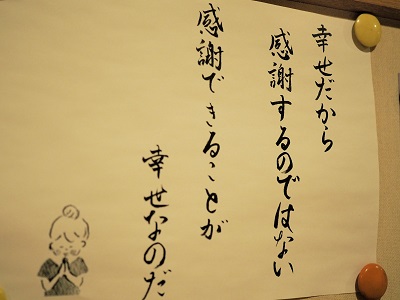 幸せだから
感謝するのではない
感謝できることが
幸せなのだ